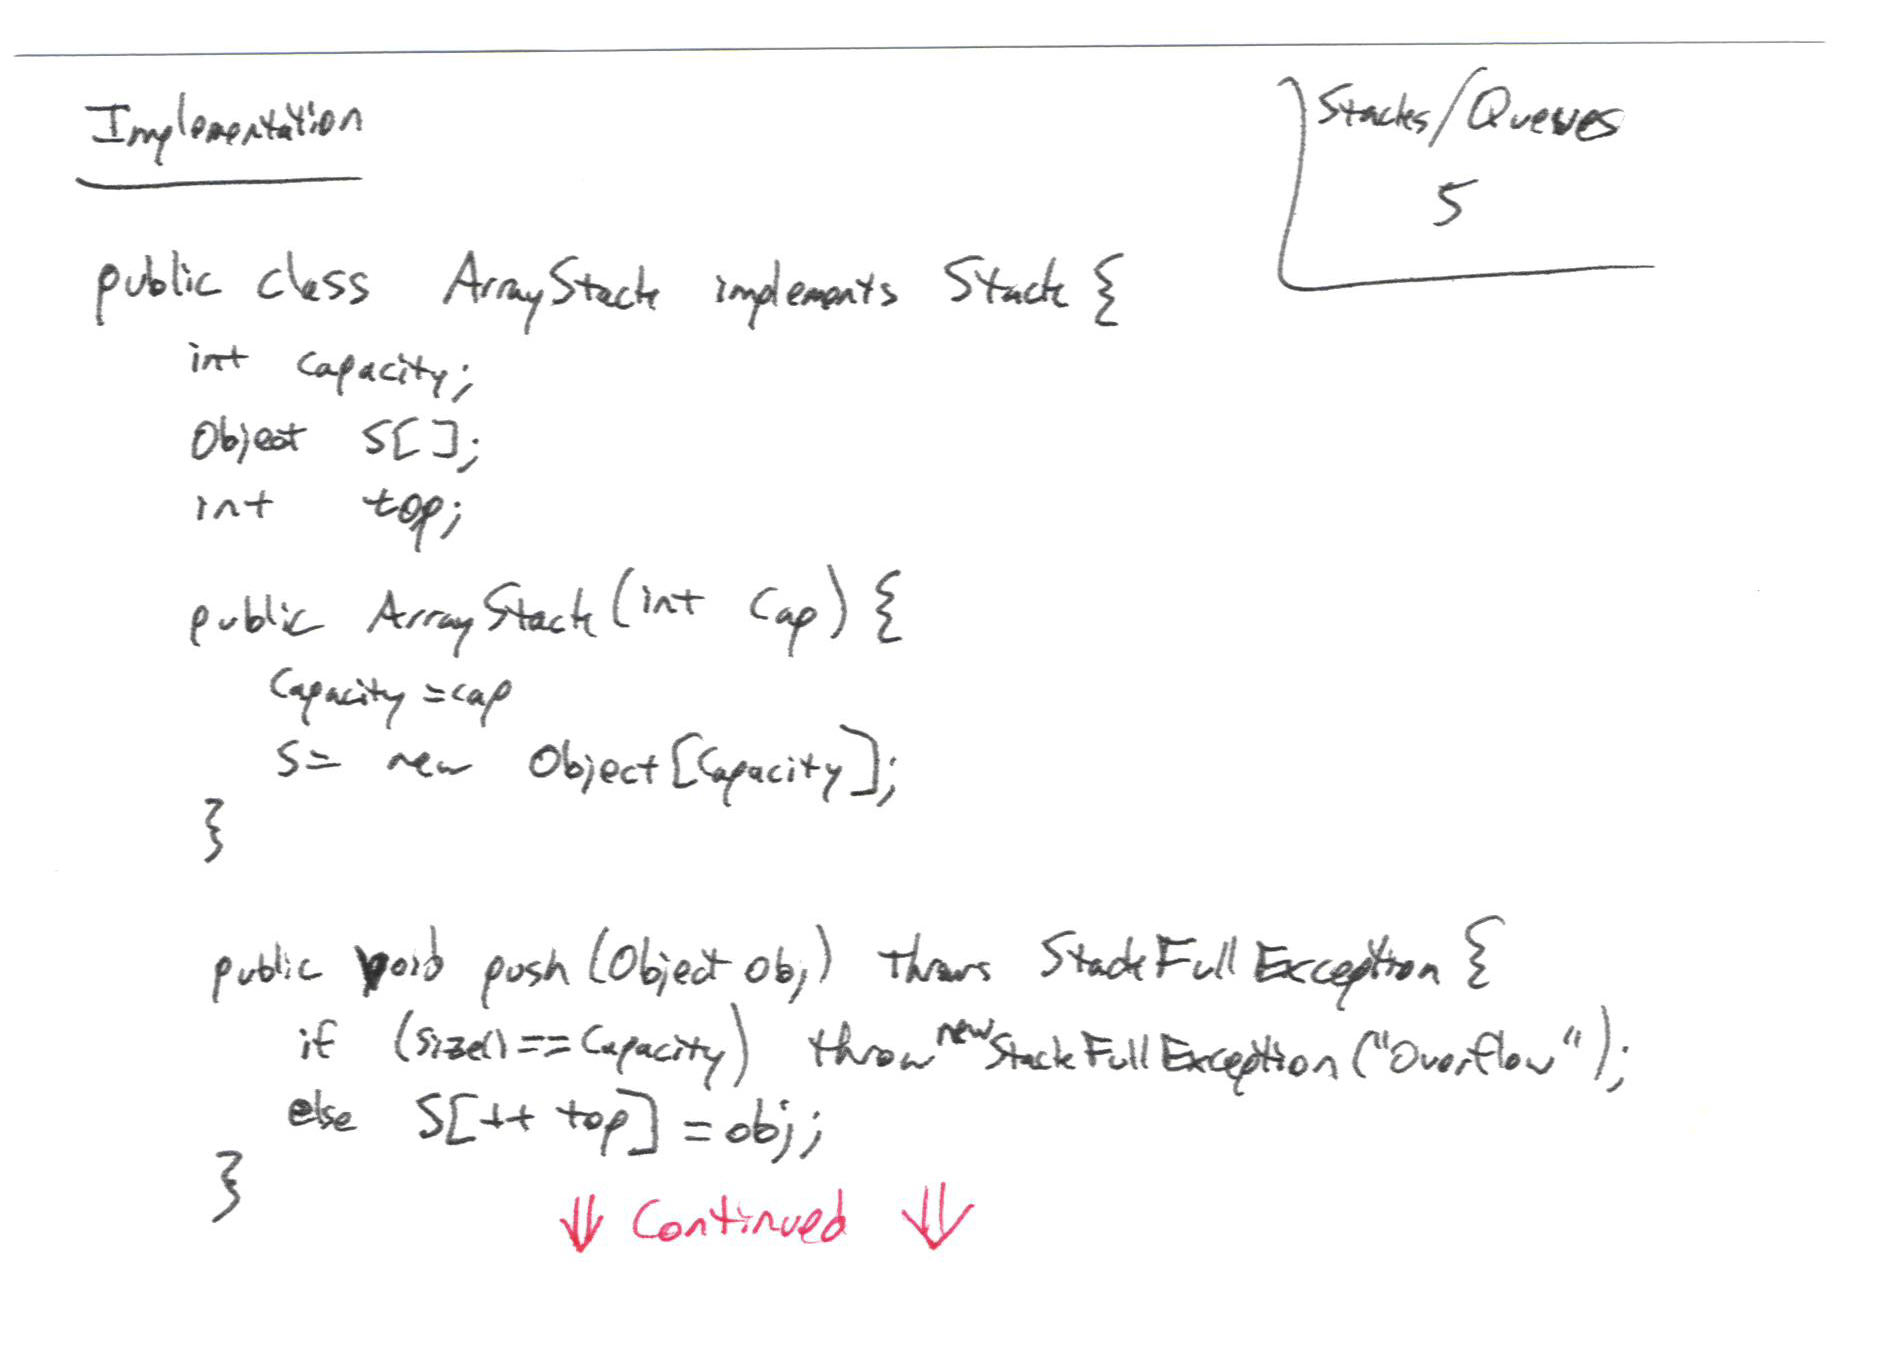 Implementation
Stacks/Queues
5
public class ArrayStack implements Stack {
int capacity;
Object S[];
int top;
public ArrayStack (int cap) {
Capacity = cap
S = new Object[Capacity];
}
public void push (Object obj) throws StackFullException {
if (size() == Capacity) throw new StackFullException ("Overflow");
else S[++ top] = obj;
}
⇓ Continued ⇓